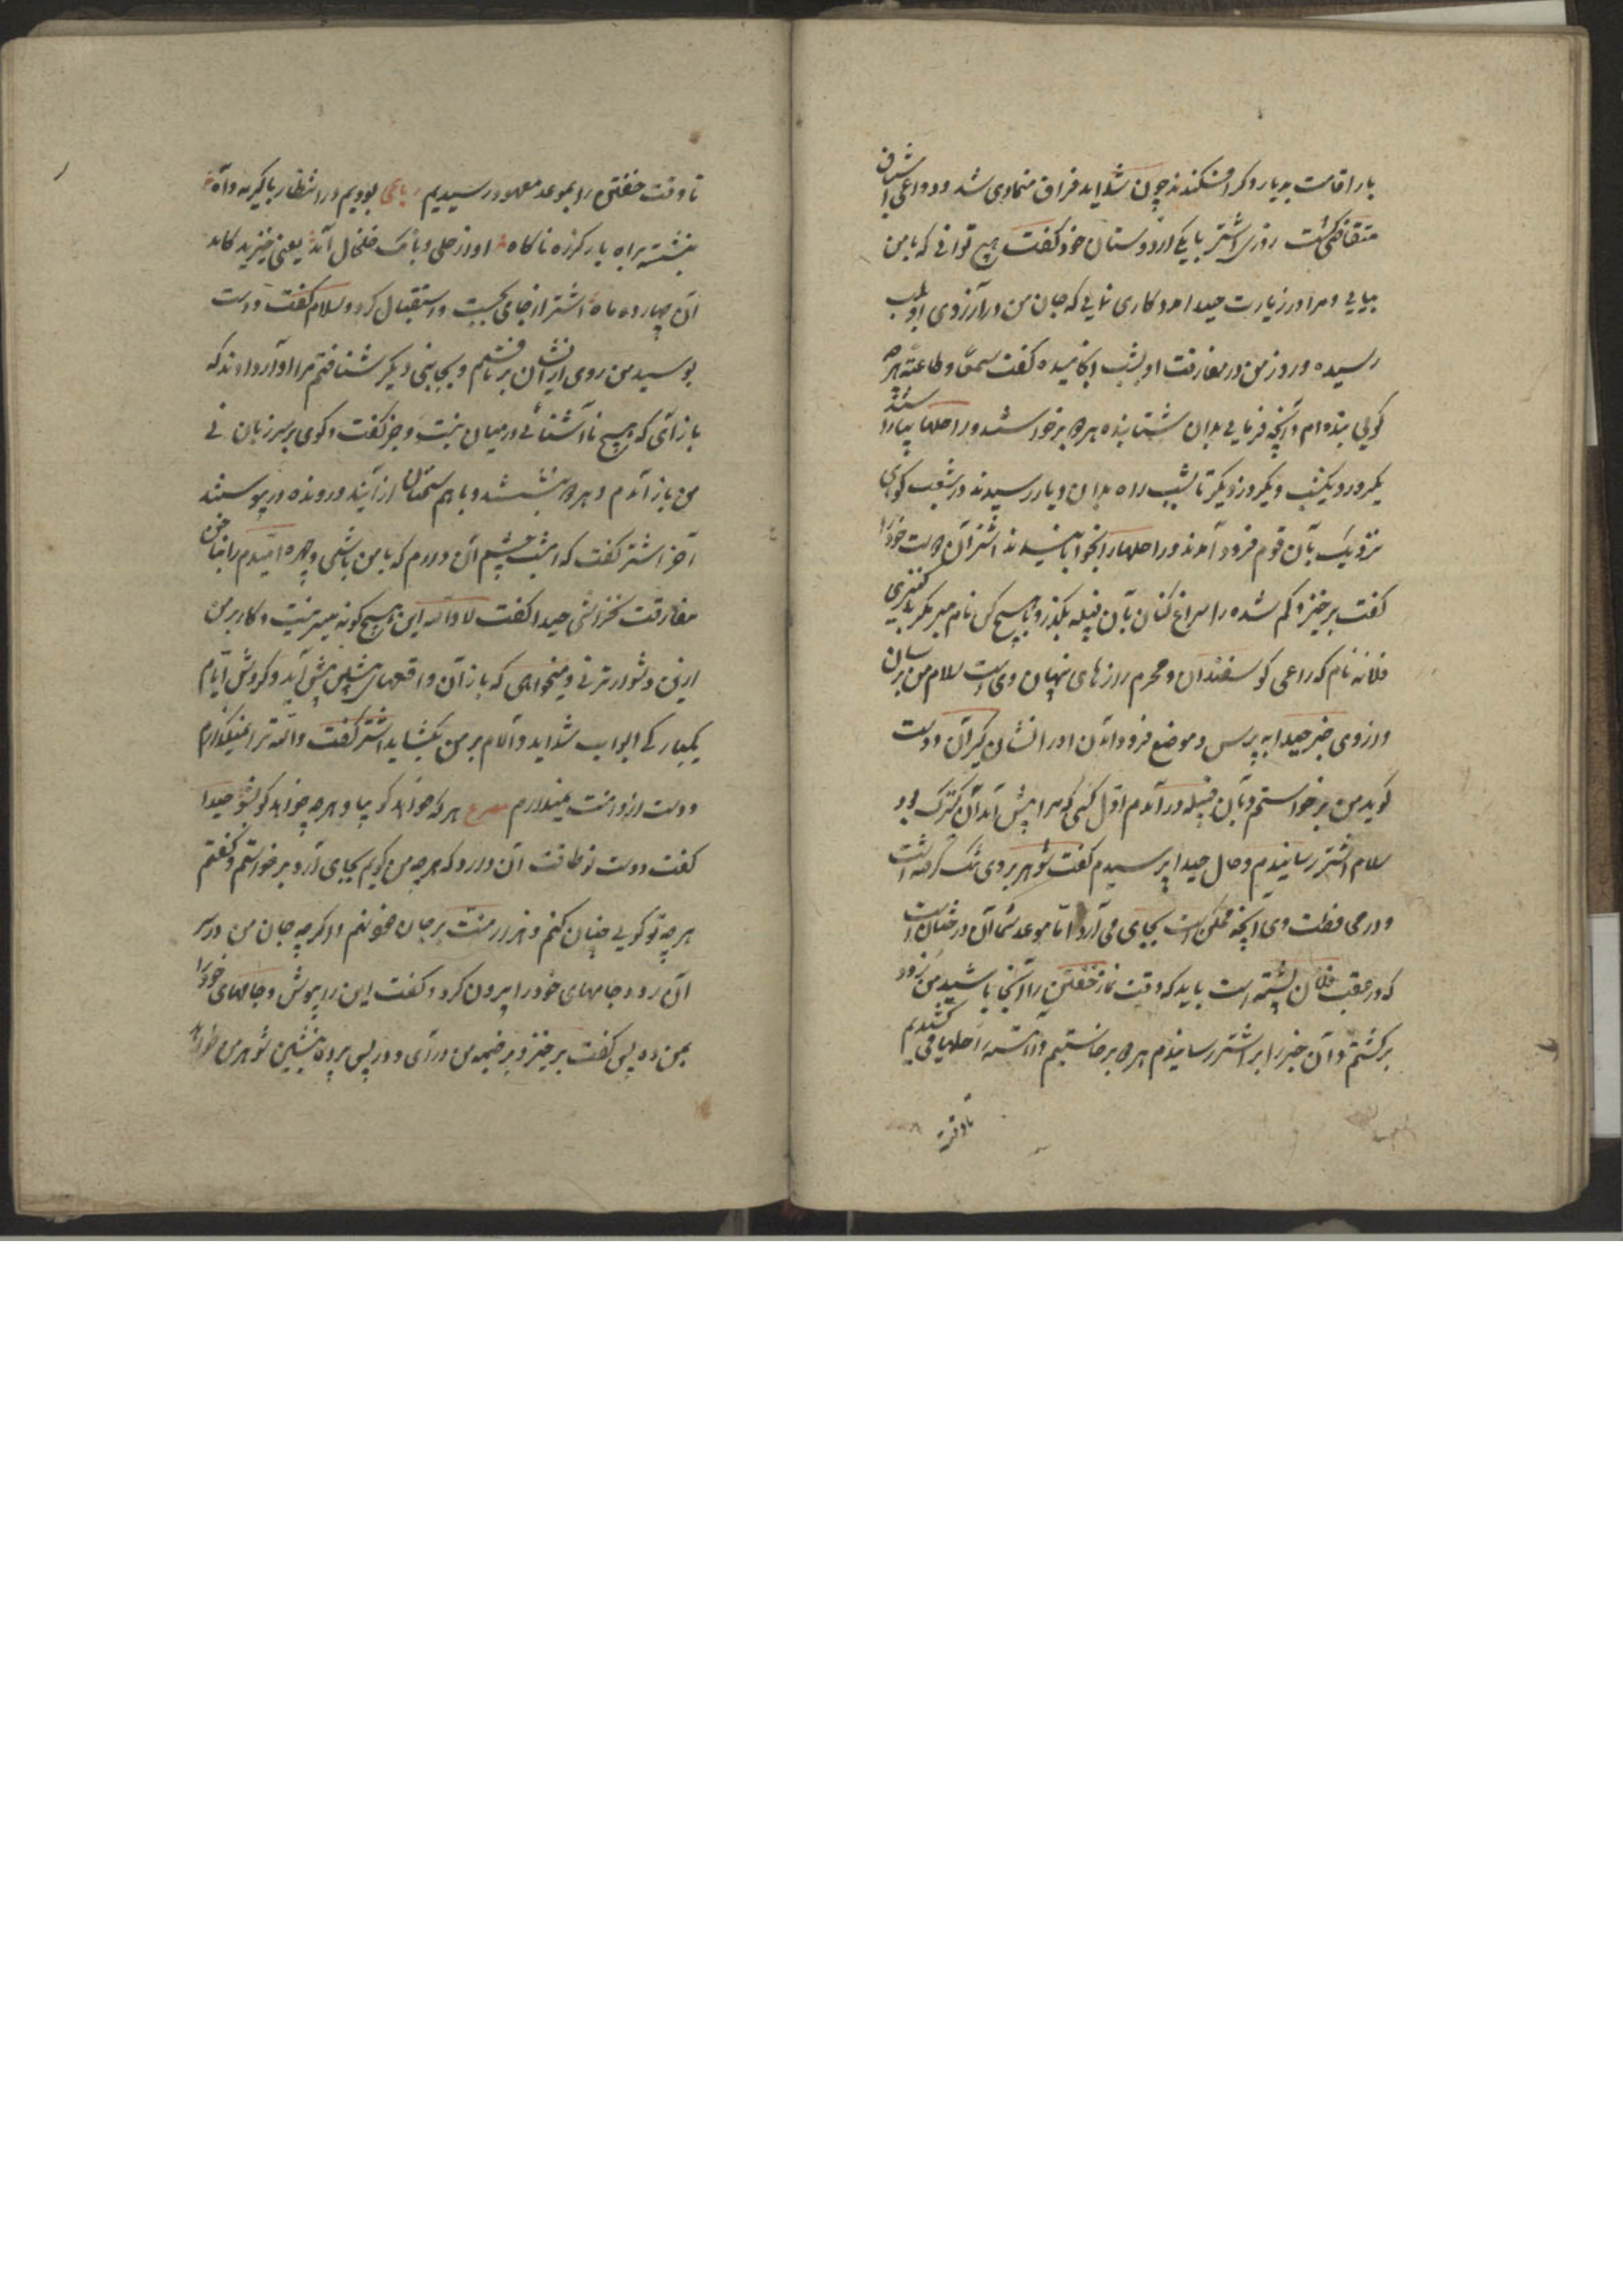 بار اقامت بدیار دکر افکندند چون شداید فراق متمادی شد و دواعی اشتیاق
متقاضی کشت روزی اشتر با یکی از دوستان خود کفت هیچ توانی که با من
بیایی و مرا در زیارت جیدا مددکاری نمایی که جان من در آرزوی او بلب
رسیده و روز من در مفارقت او بشب انجامیده کفت سمعا و طاعة هر چه
کویی بنده ام و آنچه فرمایی بدان شتابنده هر دو برخواستند و راحلها بیاراستند
یکروز و یکشب و یکروز دیکر تا شب راه بدان دیار رسیدند در شعب کوهی
نزدیک بآن قوم فرود آمدند و راحلها را بخوابانیدند اشتر آن دوست خود را
کفت برخیز و کم شده را سراغ کنان بآن قبیله بکذر و با هیچ کس نام مبر مکر با کنیزکی
فلانه نام که راعی کوسفندان و محرم رازهای پنهان وی است سلام من برسان
و از وی خبر جیدا به پرس و موضع فرود آمدن او را نشان کیر آن دوست
کوید من برخواستم و بآن قبیله در آمدم اول کسی که مرا پیش آمد آن کنیزک بود
سلام اشتر رسانیدم و حال جیدا پرسیدم کفت شوهر بر وی تنک کرفته است
و در محافظت وی آنچه ممکن است بجای می آرد اما موعد شما آن درختان است
که در عقب فلان پشته است باید که وقت نماز خفتن را آنجا باشید من زود
برکشتم و آن خبر را بر اشتر رسانیدم هر دو برخاستیم و آهسته راحلها می کشیدیم
تا وقت
تا وقت خفتن را بموعد معهود رسیدیم رباعی بودیم در انتظار با کریه و آه
بنشسته براه یار کز ره ناکاه آواز حلی و بانک خلخال آمد یعنی خیزید کامد
آن چهارده ماه اشتر از جای بجست و استقبال کرد و سلام کفت و دست
بوسید من روی از ایشان بر تافتم و بجانبی دیکر شتافتم مرا آواز دادند که
باز آی که هیچ نا آشنائی در میان نیست و جز کفت و کوی بر سر زبان نی
من باز آمدم و هر دو بنشستند و با هم سخنان از آینده و رونده در پیوستند
آخر اشتر کفت که امشب چشم آن دارم که با من باشی و چهره امیدم را بناخن
مفارقت نخراشی جیدا کفت لا والله این هیچ کونه میسر نیست و کار بر من
ازین دشوارتر نی و میخواهی که باز آن واقعهای پیشین پیش آید و کردش ایام
یکبارکی ابواب شداید و آلام بر من بکشاید اشتر کفت والله ترا نمیکذارم
و دست از دامنت نمیدارم مصرع هر که خواهد کو بیا و هر چه خواهد کو بشو جیدا
کفت دوست تو طاقت آن دارد که هر چه من کویم بجای آرد برخواستم و کفتم
هر چه تو کویی چنان کنم و هزار منت بر جان خود نهم و اکر چه جان من در سر
آن رود جامهای خود را بیرون کرد و کفت این را بپوش و جامهای خود را
بمن ده پس کفت برخیز و بر خیمه من در آی و در پس پرده بنشین شوهر من خواهد